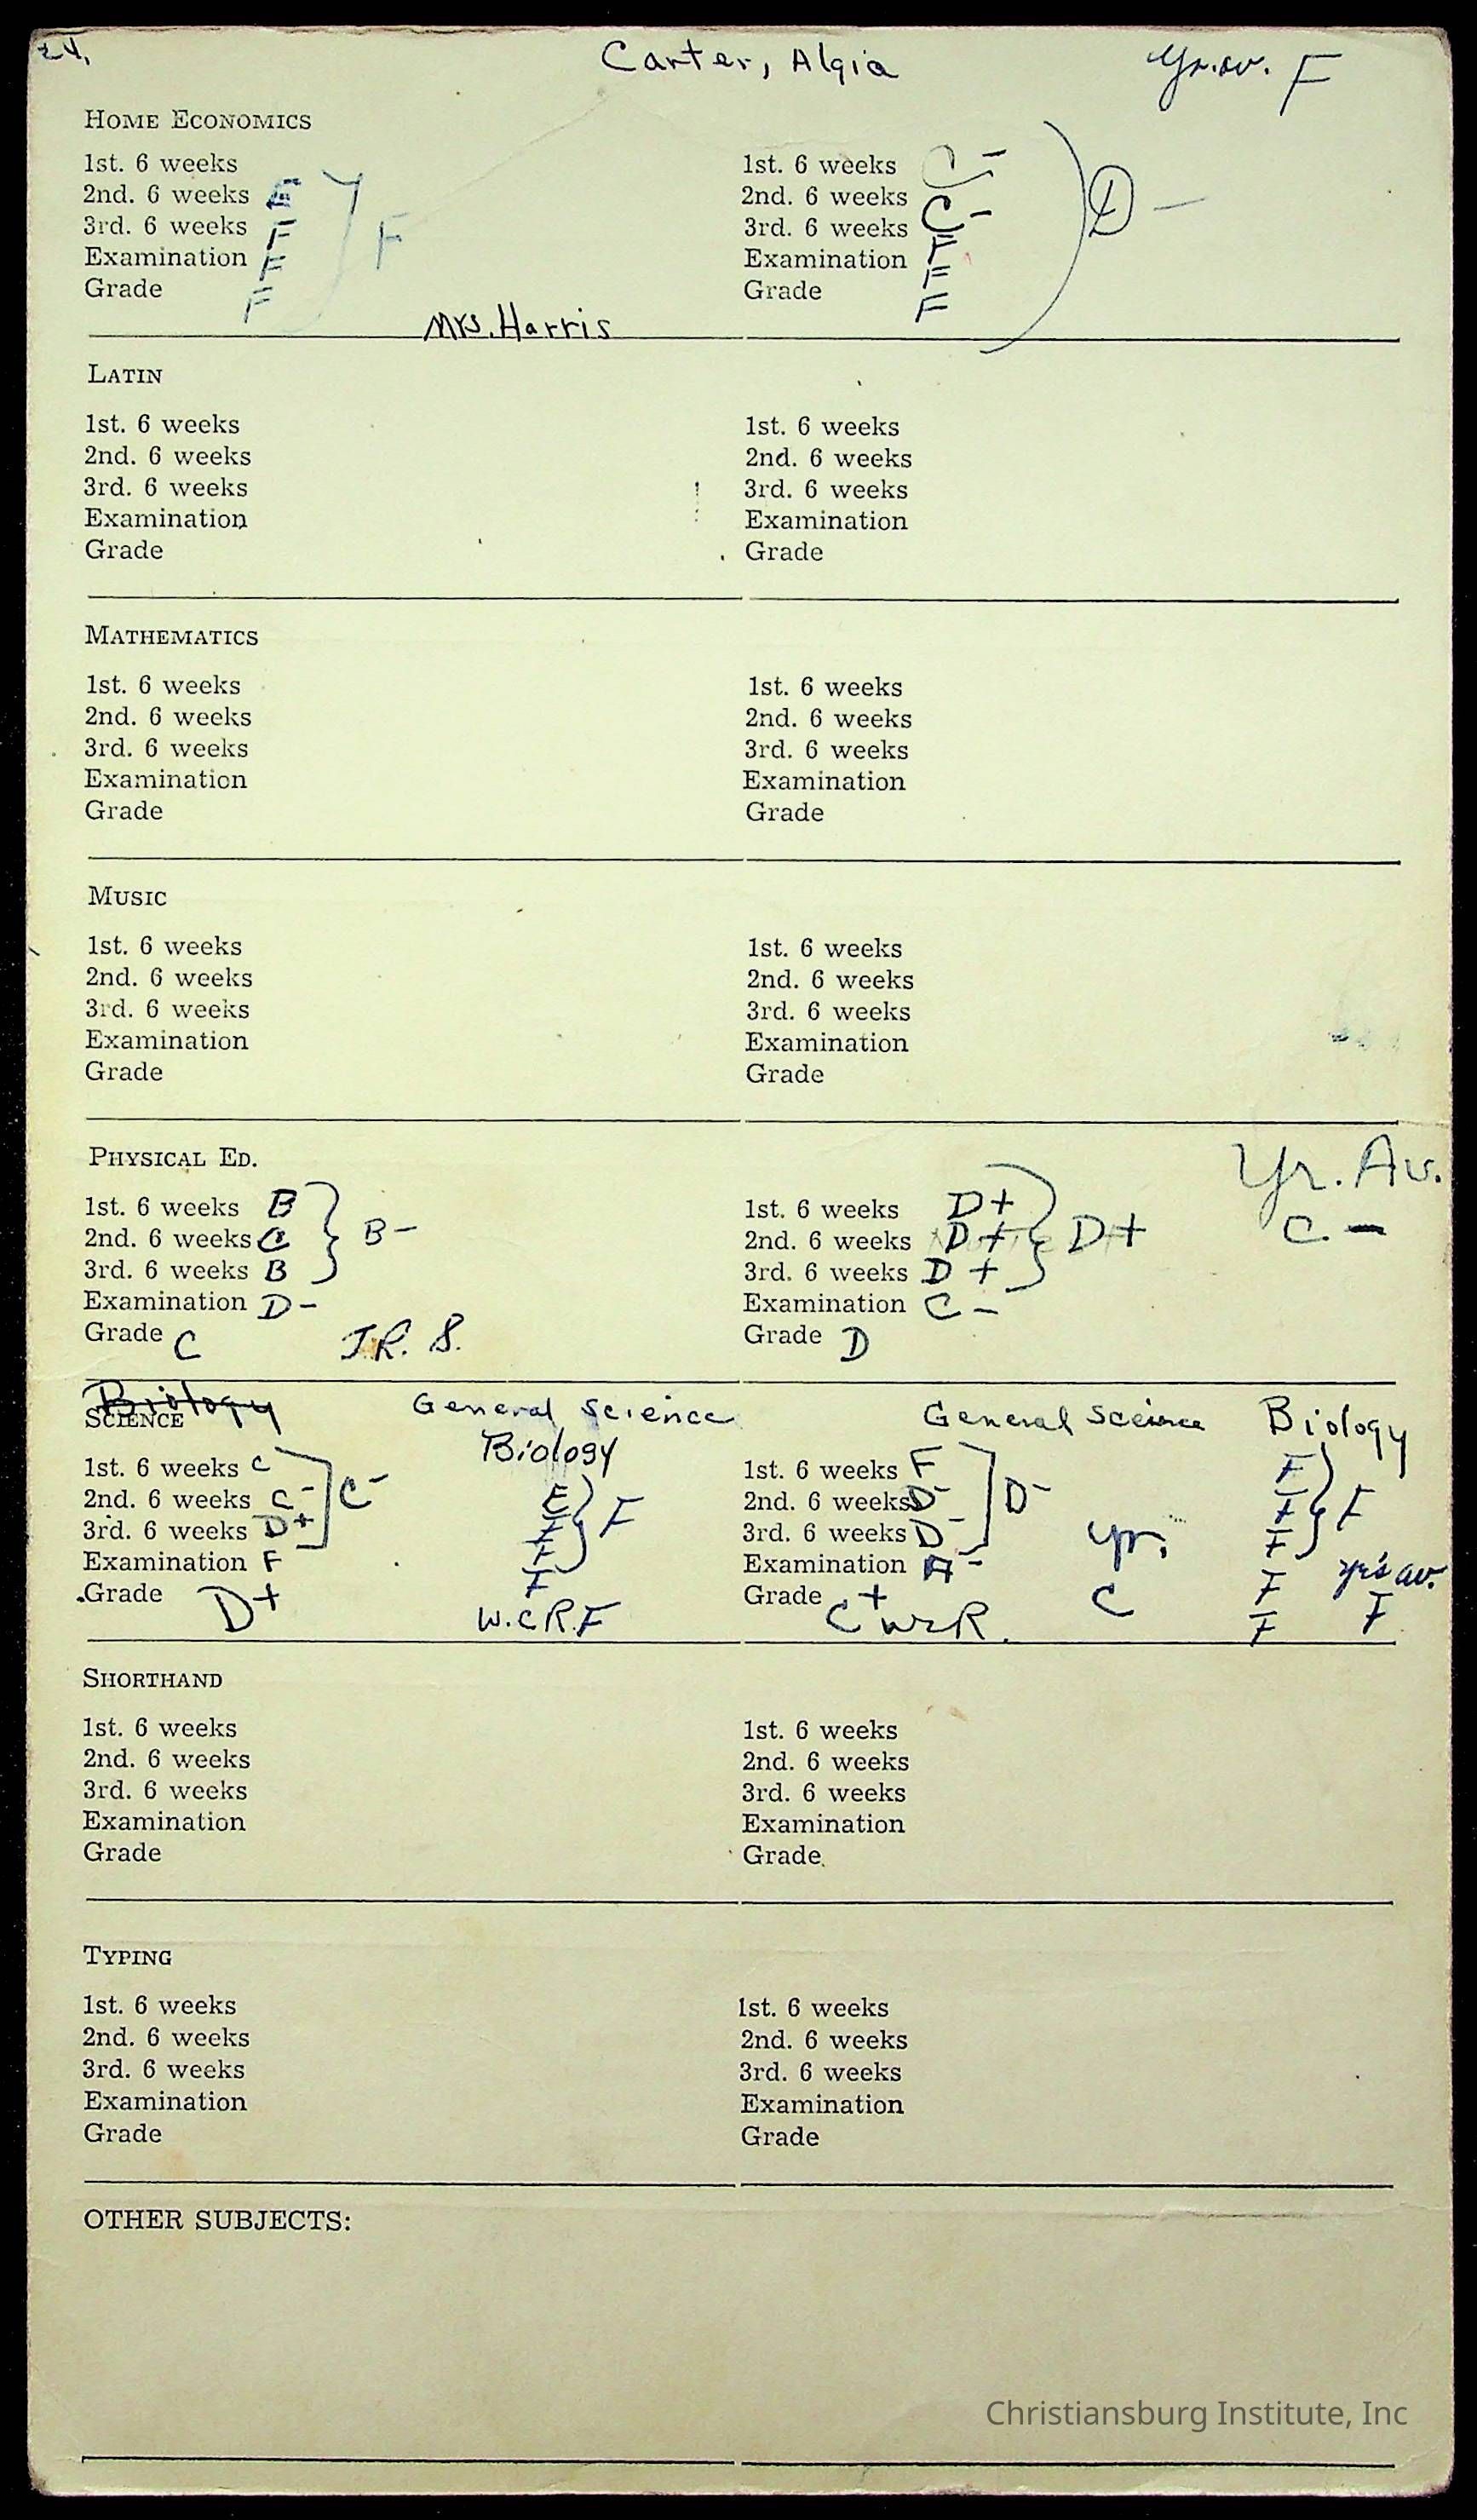 Carter, Algia
Yr. av. F
HOME ECONOMICS
1st. 6 weeks
2nd. 6 weeks F
3rd. 6 weeks F
Examination F
Grade F
F
Mrs. Harris
1st. 6 weeks C-
2nd. 6 weeks C-
3rd. 6 weeks F
Examination F
Grade F
D-
LATIN
1st. 6 weeks
2nd. 6 weeks
3rd. 6 weeks
Examination
Grade
1st. 6 weeks
2nd. 6 weeks
3rd. 6 weeks
Examination
Grade
MATHEMATICS
1st. 6 weeks
2nd. 6 weeks
3rd. 6 weeks
Examination
Grade
1st. 6 weeks
2nd. 6 weeks
3rd. 6 weeks
Examination
Grade
MUSIC
1st. 6 weeks
2nd. 6 weeks
3rd. 6 weeks
Examination
Grade
1st. 6 weeks
2nd. 6 weeks
3rd. 6 weeks
Examination
Grade
PHYSICAL ED.
1st. 6 weeks B
2nd. 6 weeks C
3rd. 6 weeks B
B-
Examination D-
Grade C
J.R. S.
1st. 6 weeks D+
2nd. 6 weeks D+
3rd. 6 weeks D+
D+
Examination C-
Grade D
Yr. Av.
C-
Biology
SCIENCE
General Science
1st. 6 weeks C
2nd. 6 weeks C-
3rd. 6 weeks D+
C-
Examination F
Grade D+
Biology
F
F
F
F
F
W.C.R. F
General Science
1st. 6 weeks F
2nd. 6 weeks D-
3rd. 6 weeks D-
D-
Examination A-
Grade C+
WCR.
Yr.
C
Biology
F
F
F
F
F
F
yr's av.
F
SHORTHAND
1st. 6 weeks
2nd. 6 weeks
3rd. 6 weeks
Examination
Grade
1st. 6 weeks
2nd. 6 weeks
3rd. 6 weeks
Examination
Grade
TYPING
1st. 6 weeks
2nd. 6 weeks
3rd. 6 weeks
Examination
Grade
1st. 6 weeks
2nd. 6 weeks
3rd. 6 weeks
Examination
Grade
OTHER SUBJECTS:
Christiansburg Institute, Inc